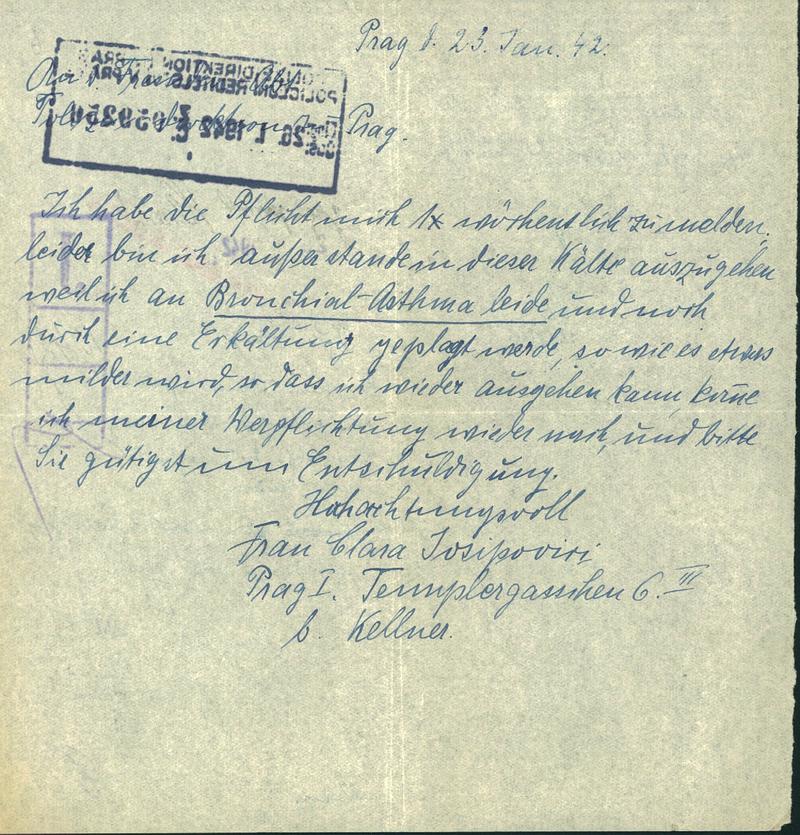 Prag d. 23. Jan. 42.
An d.
Prag.
Ich habe die Pflicht mich 1x wöchentlich zu melden,
leider bin ich außerstande in dieser Kälte auszugehen
weil ich an Bronchial-Asthma leide und noch
durch eine Erkältung geplagt werde, sowie es etwas
milder wird, so dass ich wieder ausgehen kann, kome
ich meiner Verpflichtung wieder nach, und bitte
Sie gütigst um Entschuldigung.
Hochachtungsvoll
Frau Clara Josipovici
Prag I. Templergasschen 6. III
b. Kellner.